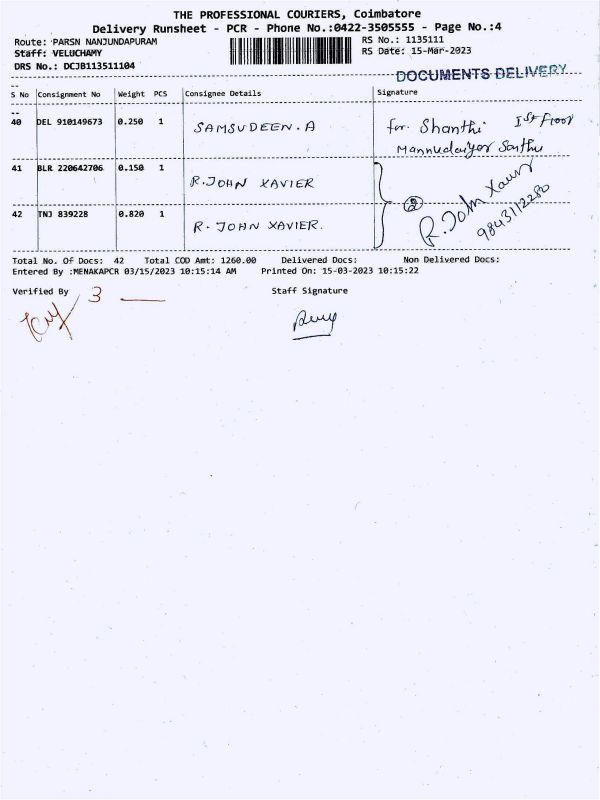 THE PROFESSIONAL COURIERS, Coimbatore
Delivery Runsheet - PCR - Phone No.:0422-3505555 - Page No.:4
Route: PARSN NANJUNDAPURAM
RS No.: 1135111
Staff: VELUCHAMY
RS Date: 15-Mar-2023
DRS No.: DCJB113511104
DOCUMENTS DELIVERY
S No Consignment No Weight PCS Consignee Details Signature
40 DEL 910149673 0.250 1 SAMSUDEEN.A for Shanthi Ist floor
41 BLR 220642706 0.150 1 R.JOHN XAVIER
42 TNJ 839228 0.820 1 R. JOHN XAVIER.
2 R. John Xavier
9843112280
Total No. Of Docs: 42 Total COD Amt: 1260.00 Delivered Docs: Non Delivered Docs:
Entered By :MENAKAPCR 03/15/2023 10:15:14 AM Printed On: 15-03-2023 10:15:22
Verified By 3 Staff Signature